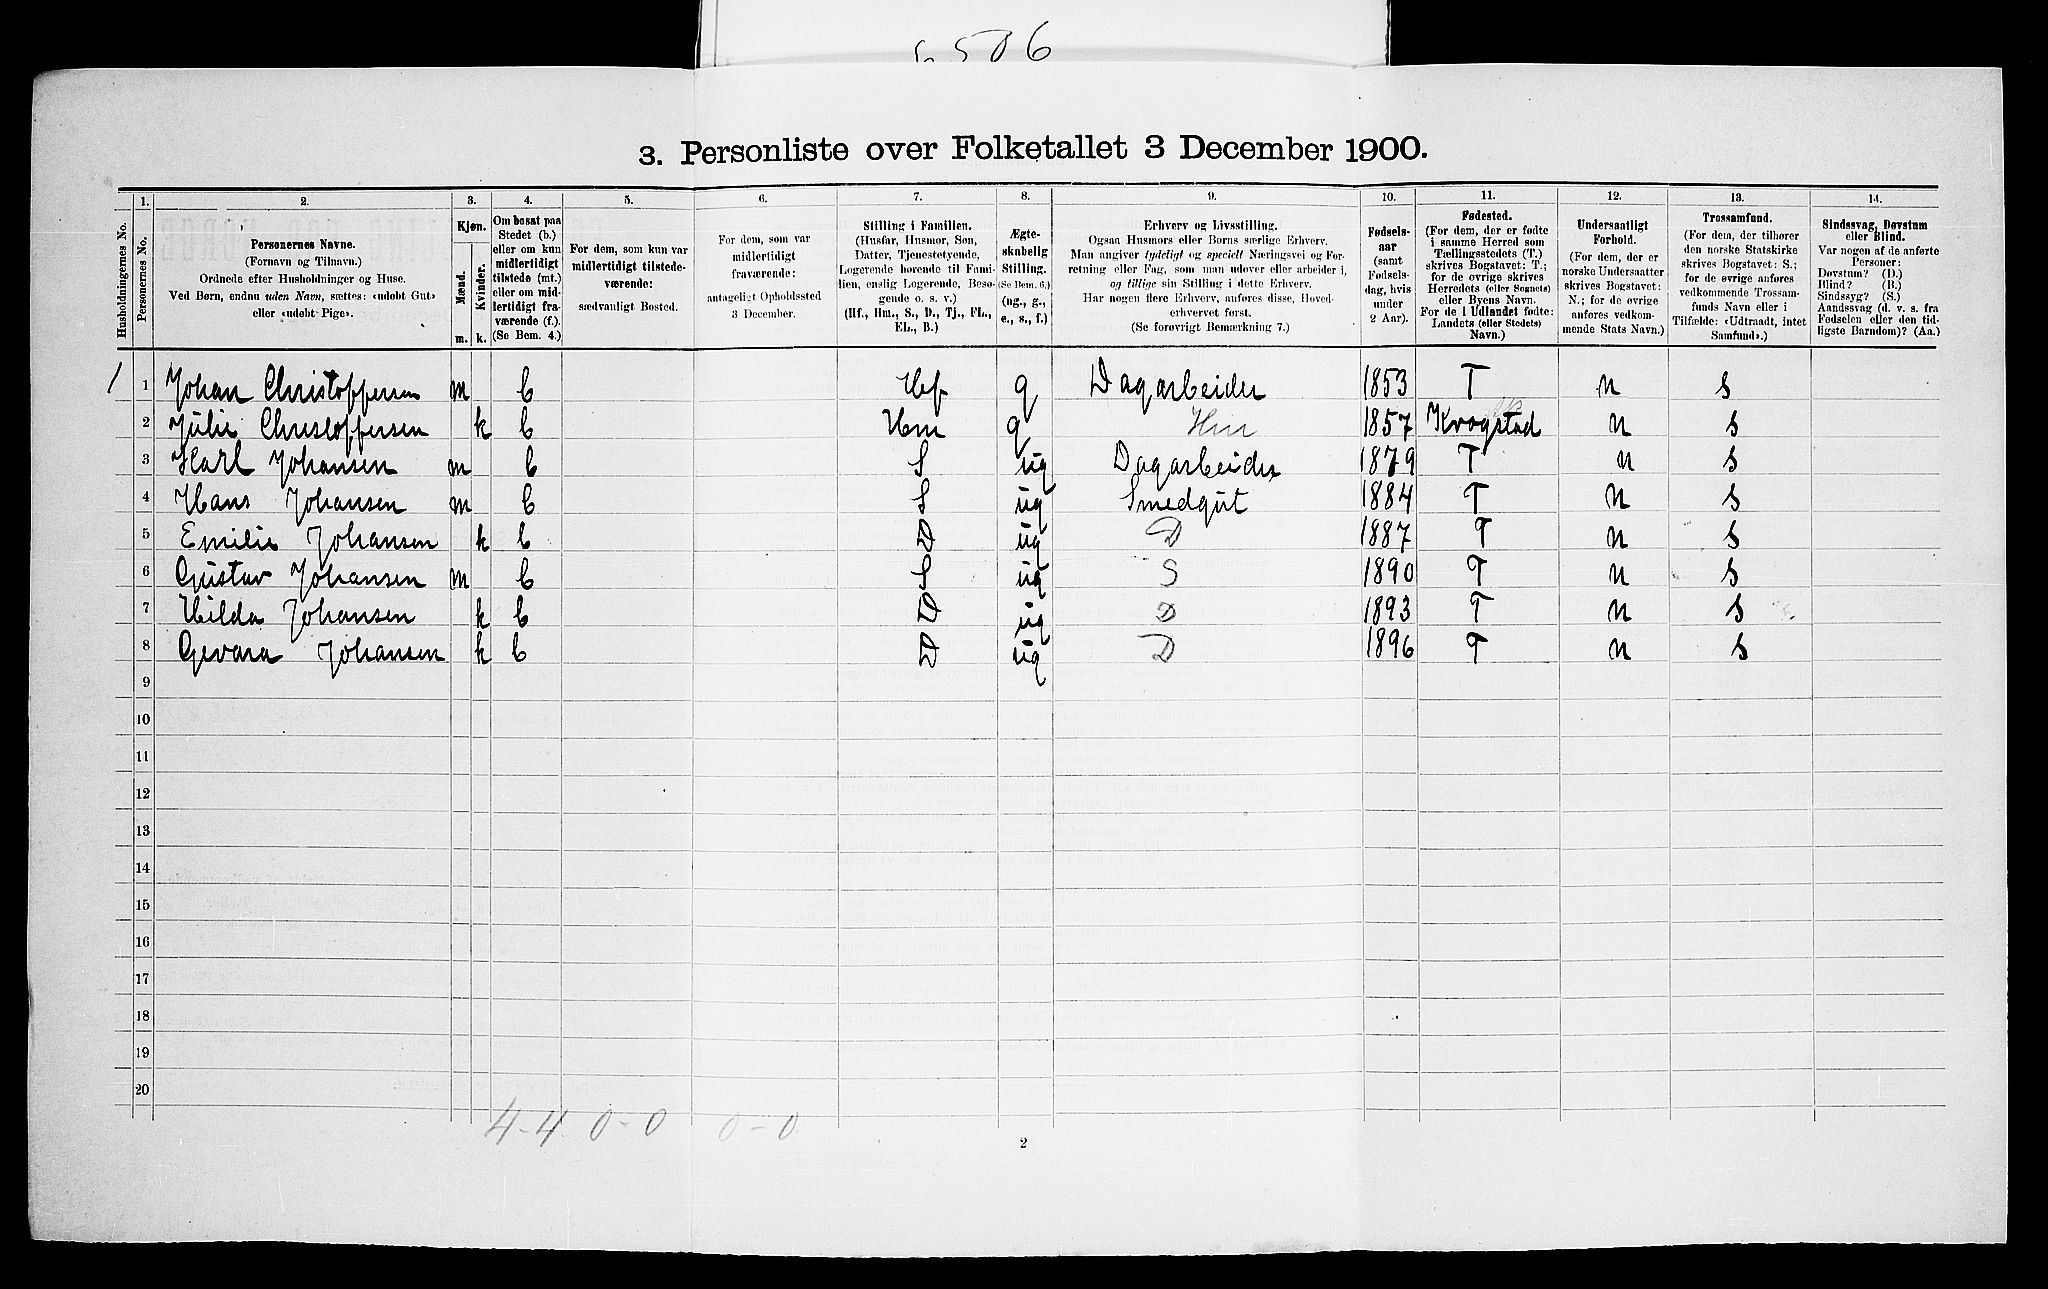 6506
3. Personliste over Folketallet 3 December 1900.
Husholdningernes No.
1. Personernes No.
2. Personernes Navne. (Fornavn og Tilnavn.) Ordnede efter Husholdninger og Huse. Ved Børn, endnu uden Navn, sættes: «udøbt Gut» eller «udøbt Pige».
3. Kjøn. Mænd. Kvinder. m. k.
4. Om bosat paa Stedet (b.) eller om kun midlertidigt tilstede (mt.) eller om midlertidigt fraværende (f.). (Se Bem. 4.)
5. For dem, som kun var midlertidigt tilstedeværende: sædvanligt Bosted.
6. For dem, som var midlertidigt fraværende: antageligt Opholdssted 3 December.
7. Stilling i Familien. (Husfar, Husmor, Søn, Datter, Tjenestetyende, Logerende hørende til Familien, enslig Logerende, Besøgende o. s. v.) (Hf., Hm., S., D., Tj., FL., EL., B.)
8. Ægteskabelig Stilling. (Se Bem. 6.) (ug., g., e., s., f.)
9. Erhverv og Livsstilling. Ogsaa Husmors eller Børns særlige Erhverv. Man angiver tydeligt og specielt Næringsvei og Forretning eller Fag, som man udøver eller arbeider i, og tillige sin Stilling i dette Erhverv. Har nogen flere Erhverv, anføres disse, Hovederhvervet først. (Se forøvrigt Bemærkning 7.)
10. Fødselsaar (samt Fødselsdag, hvis under 2 Aar).
11. Fødested. (For dem, der er fødte i samme Herred som Tællingsstedets (T.) skrives Bogstavet: T.; for de øvrige skrives Herredets (eller Sognets) eller Byens Navn. For de i Udlandet fødte: Landets (eller Stedets) Navn.)
12. Undersaatligt Forhold. (For dem, der er norske Undersaatter skrives Bogstavet: N.; for de øvrige anføres vedkommende Stats Navn.)
13. Trossamfund. (For dem, der tilhører den norske Statskirke skrives Bogstavet: S.; for de øvrige anføres vedkommende Trossamfunds Navn eller i Tilfælde: «Udtraadt, intet Samfund».)
14. Sindssvag, Døvstum eller Blind. Var nogen af de anførte Personer: Døvstum? (D.) Blind? (B.) Sindssyg? (S.) Aandssvag (d. v. s. fra Fødselen eller den tidligste Barndom)? (Aa.)
1 1 Johan Christoffersen m b Hf g Dagarbeider 1853 T n S
2 Julie Christoffersen k b Hm g Hm 1857 Krogstad n S
3 Karl Johansen m b S ug Dagarbeider 1879 T n S
4 Hans Johansen m b S ug Smedgut 1884 T n S
5 Emilie Johansen k b D ug D 1887 T n S
6 Gustav Johansen m b S ug S 1890 T n S
7 Hilda Johansen k b D ug D 1893 T n S
8 Gevara Johansen k b D ug D 1896 T n S
9
10
11
12
13
14
15
16
17
18
19
20
4-4 0-0 0-0
2